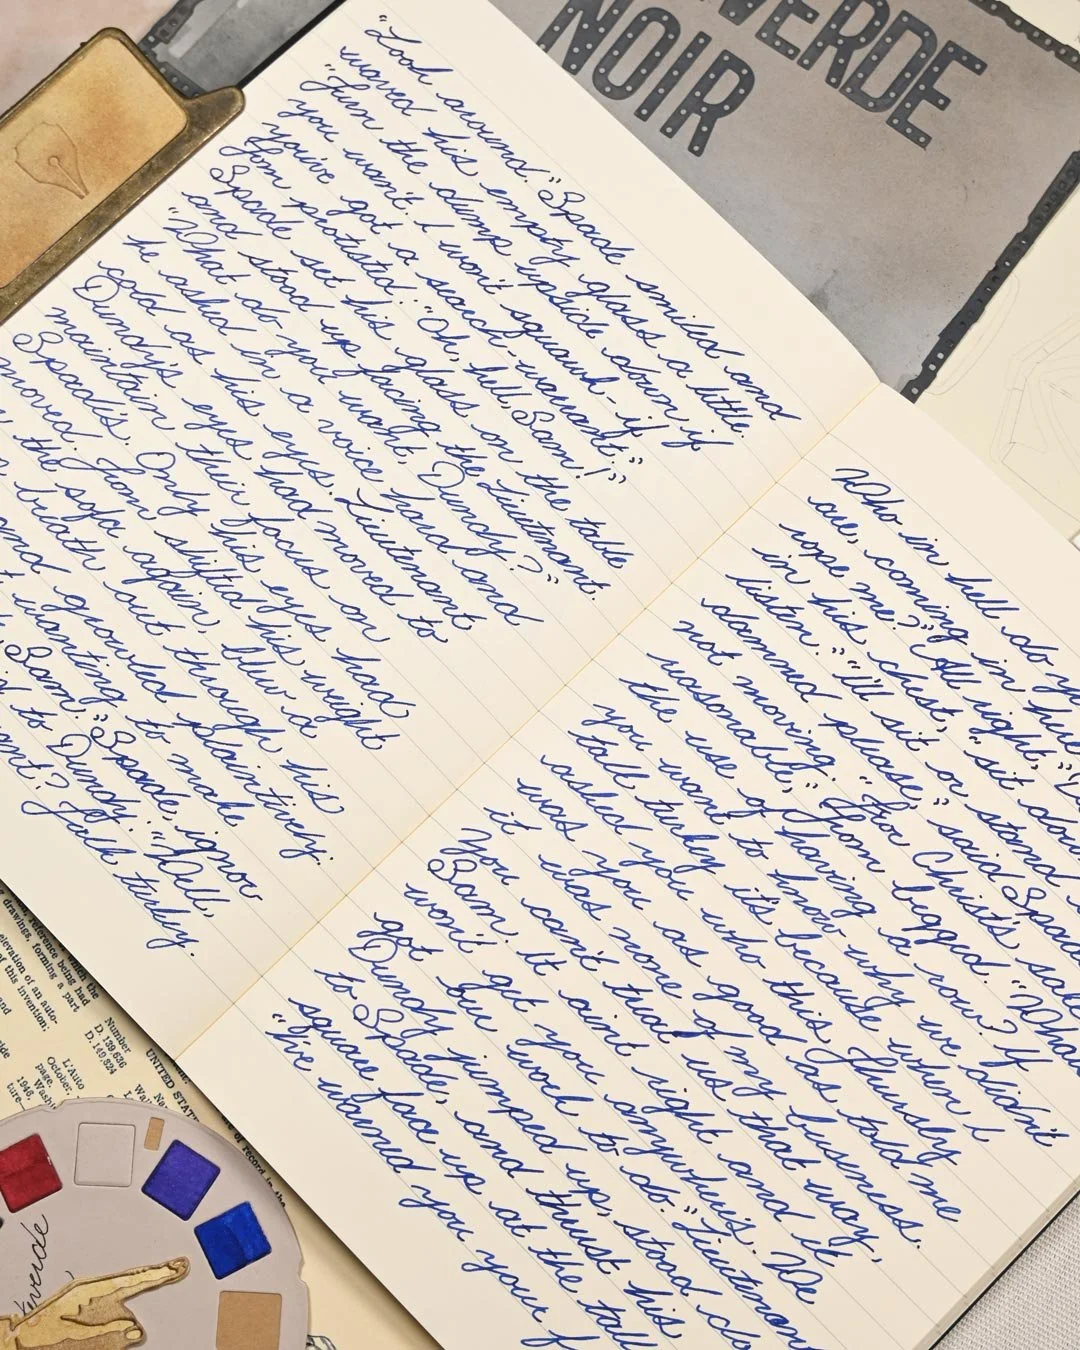 VERDE
NOIR
"Look around." Spade smiled and
waved his empty glass a little.
"Turn the dump upside down if
you want. I won't squawk – if
you've got a search-warrant."
Tom protested: "Oh, hell, Sam!"
Spade set his glass on the table
and stood up facing the Lieutenant.
"What do you want, Dundy?"
he asked in a voice hard and
cold as his eyes. Lieutenant
Dundy's eyes had moved to
maintain their focus on
Spade's. Only his eyes had
moved. Tom shifted his weight
the sofa again, blew a
breath out through his
and growled plaintively.
wanting to make
Sam." Spade, ignor
to Dundy: "Well,
ant? Talk turkey.
Who in hell do you
are, coming in here
rope me?" "All right,"
in his chest, "sit down
listen." "I'll sit or stand
damned please," said Spade
not moving. "For Christ's sake
reasonable," Tom begged. "What
the use of having a row? If
you want to know why we didn't
talk turkey it's because when I
asked you who this Thursby
was you as good as told me
it was none of my buseness.
You can't treat us that way,
Sam. It ain't right and it
won't get you anywheres. We
got our work to do." Lieutenan
Dundy jumped up, stood clo
to Spade, and thrust his
square face up at the tall
"I've warned you your f
drawings, forming a part
of this invention:
Number
D. 139,636
D. 149,324
UNITED STAT
L'Auto
October,
page.
1946.
of record in the